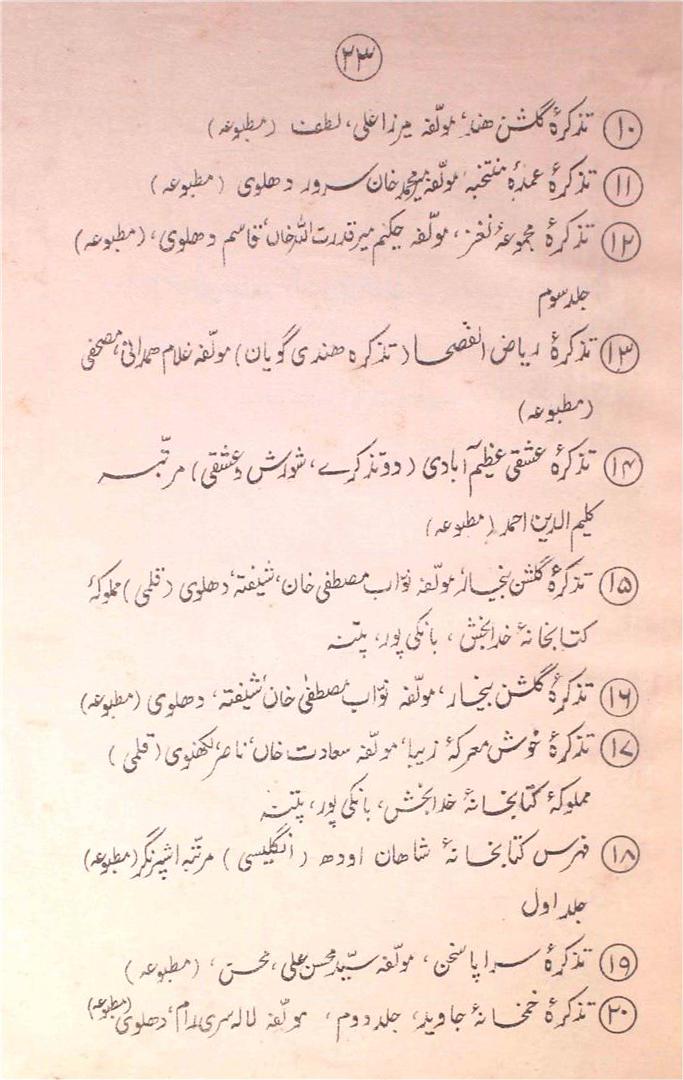 ۲۳
۱۰ تذکرۂ گلشن ھند، مولّفہ میرزا علی، لطف (مطبوعہ)
۱۱ تذکرۂ عمدۂ منتخبہ مولّفہ میر محمد خان سرور دھلوی (مطبوعہ)
۱۲ تذکرۂ مجموعۂ نغز، مولّفہ حکیم میر قدرت اللہ خاں، قاسم دھلوی، (مطبوعہ)
جلد سوم
۱۳ تذکرۂ ریاض الفصحا (تذکرہ ھندی گویان) مولّفہ غلام ھمدانی، مصحفی
(مطبوعہ)
۱۴ تذکرۂ عشقی عظیم آبادی (دو تذکرے، شورش و عشقی) مرتّبہ
کلیم الدین احمد (مطبوعہ)
۱۵ تذکرۂ گلشن بیخار، مولّفہ نوّاب مصطفی خان، شیفتہ، دھلوی (قلمی) مملوکۂ
کتابخانۂ خدابخش، بانکی پور، پتنہ
۱۶ تذکرۂ گلشن بیخار، مولّفہ نوّاب مصطفٰی خان، شیفتہ، دھلوی (مطبوعہ)
۱۷ تذکرۂ خوش معرکۂ زیبا، مولّفہ سعادت خاں، ناصر لکھنوی (قلمی)
مملوکۂ کتابخانۂ خدابخش، بانکی پور، پتنہ
۱۸ فہرس کتابخانۂ شاھان اودھ (انگلیسی) مرتّبہ اشپرنگر (مطبوعہ)
جلد اول
۱۹ تذکرۂ سراپا سخن، مولّفہ سیّد محسن علی، محسن، (مطبوعہ)
۲۰ تذکرۂ خمخانۂ جاوید، جلد دوم، مولّفہ لالہ سری رام، دھلوی (مطبوعہ)